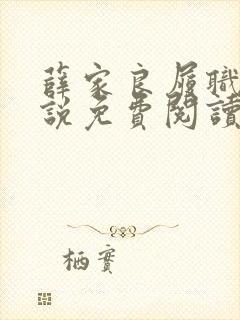 薛家良履職
說免費閱讀
栖實